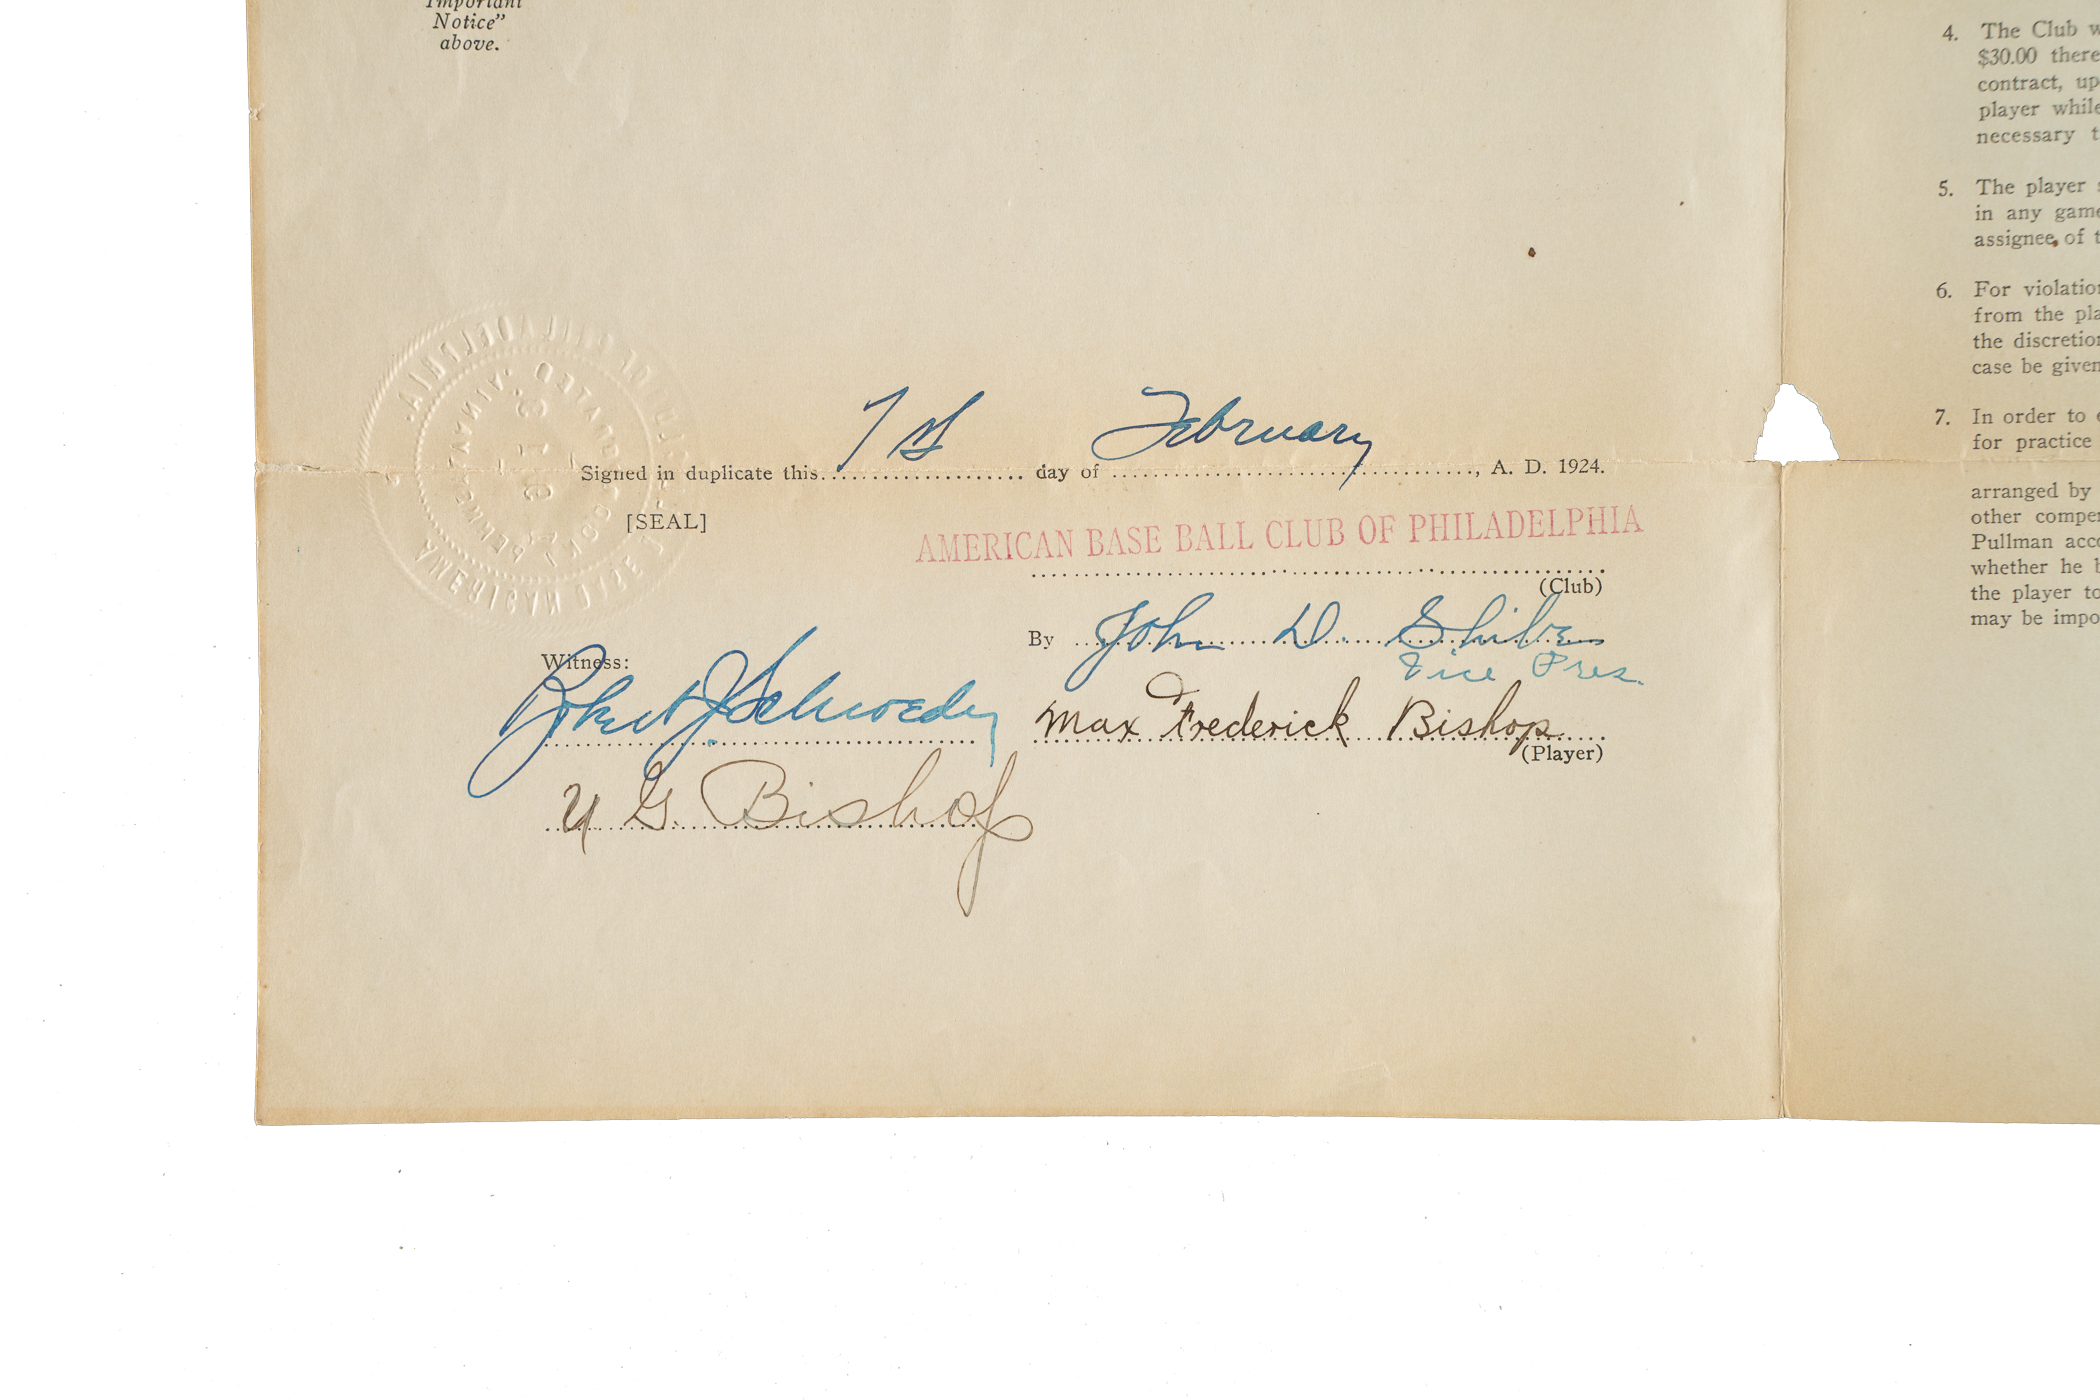 Important
Notice"
above.
Signed in duplicate this 1st day of February, A. D. 1924.
[SEAL]
AMERICAN BASE BALL CLUB OF PHILADELPHIA
(Club)
By John D. Shibe
Vice Pres.
Witness:
Robert J Schroeder
Max Frederick Bishop
(Player)
U G. Bishop
4. The Club w
$30.00 there
contract, up
player while
necessary t
5. The player s
in any game
assignee of t
6. For violation
from the pla
the discretion
case be given
7. In order to e
for practice
arranged by
other compen
Pullman acco
whether he b
the player to
may be impo